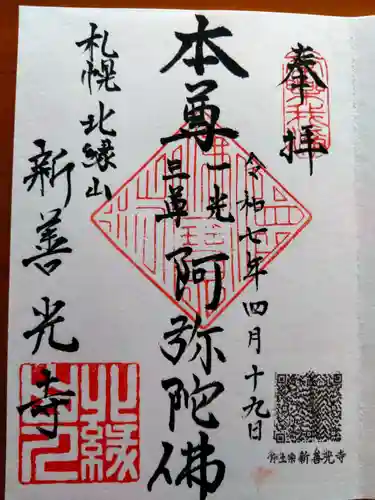 奉拝
令和七年四月十九日
本尊
一光
三尊
阿弥陀佛
札幌北縁山
新善光寺
北縁
浄土宗新善光寺